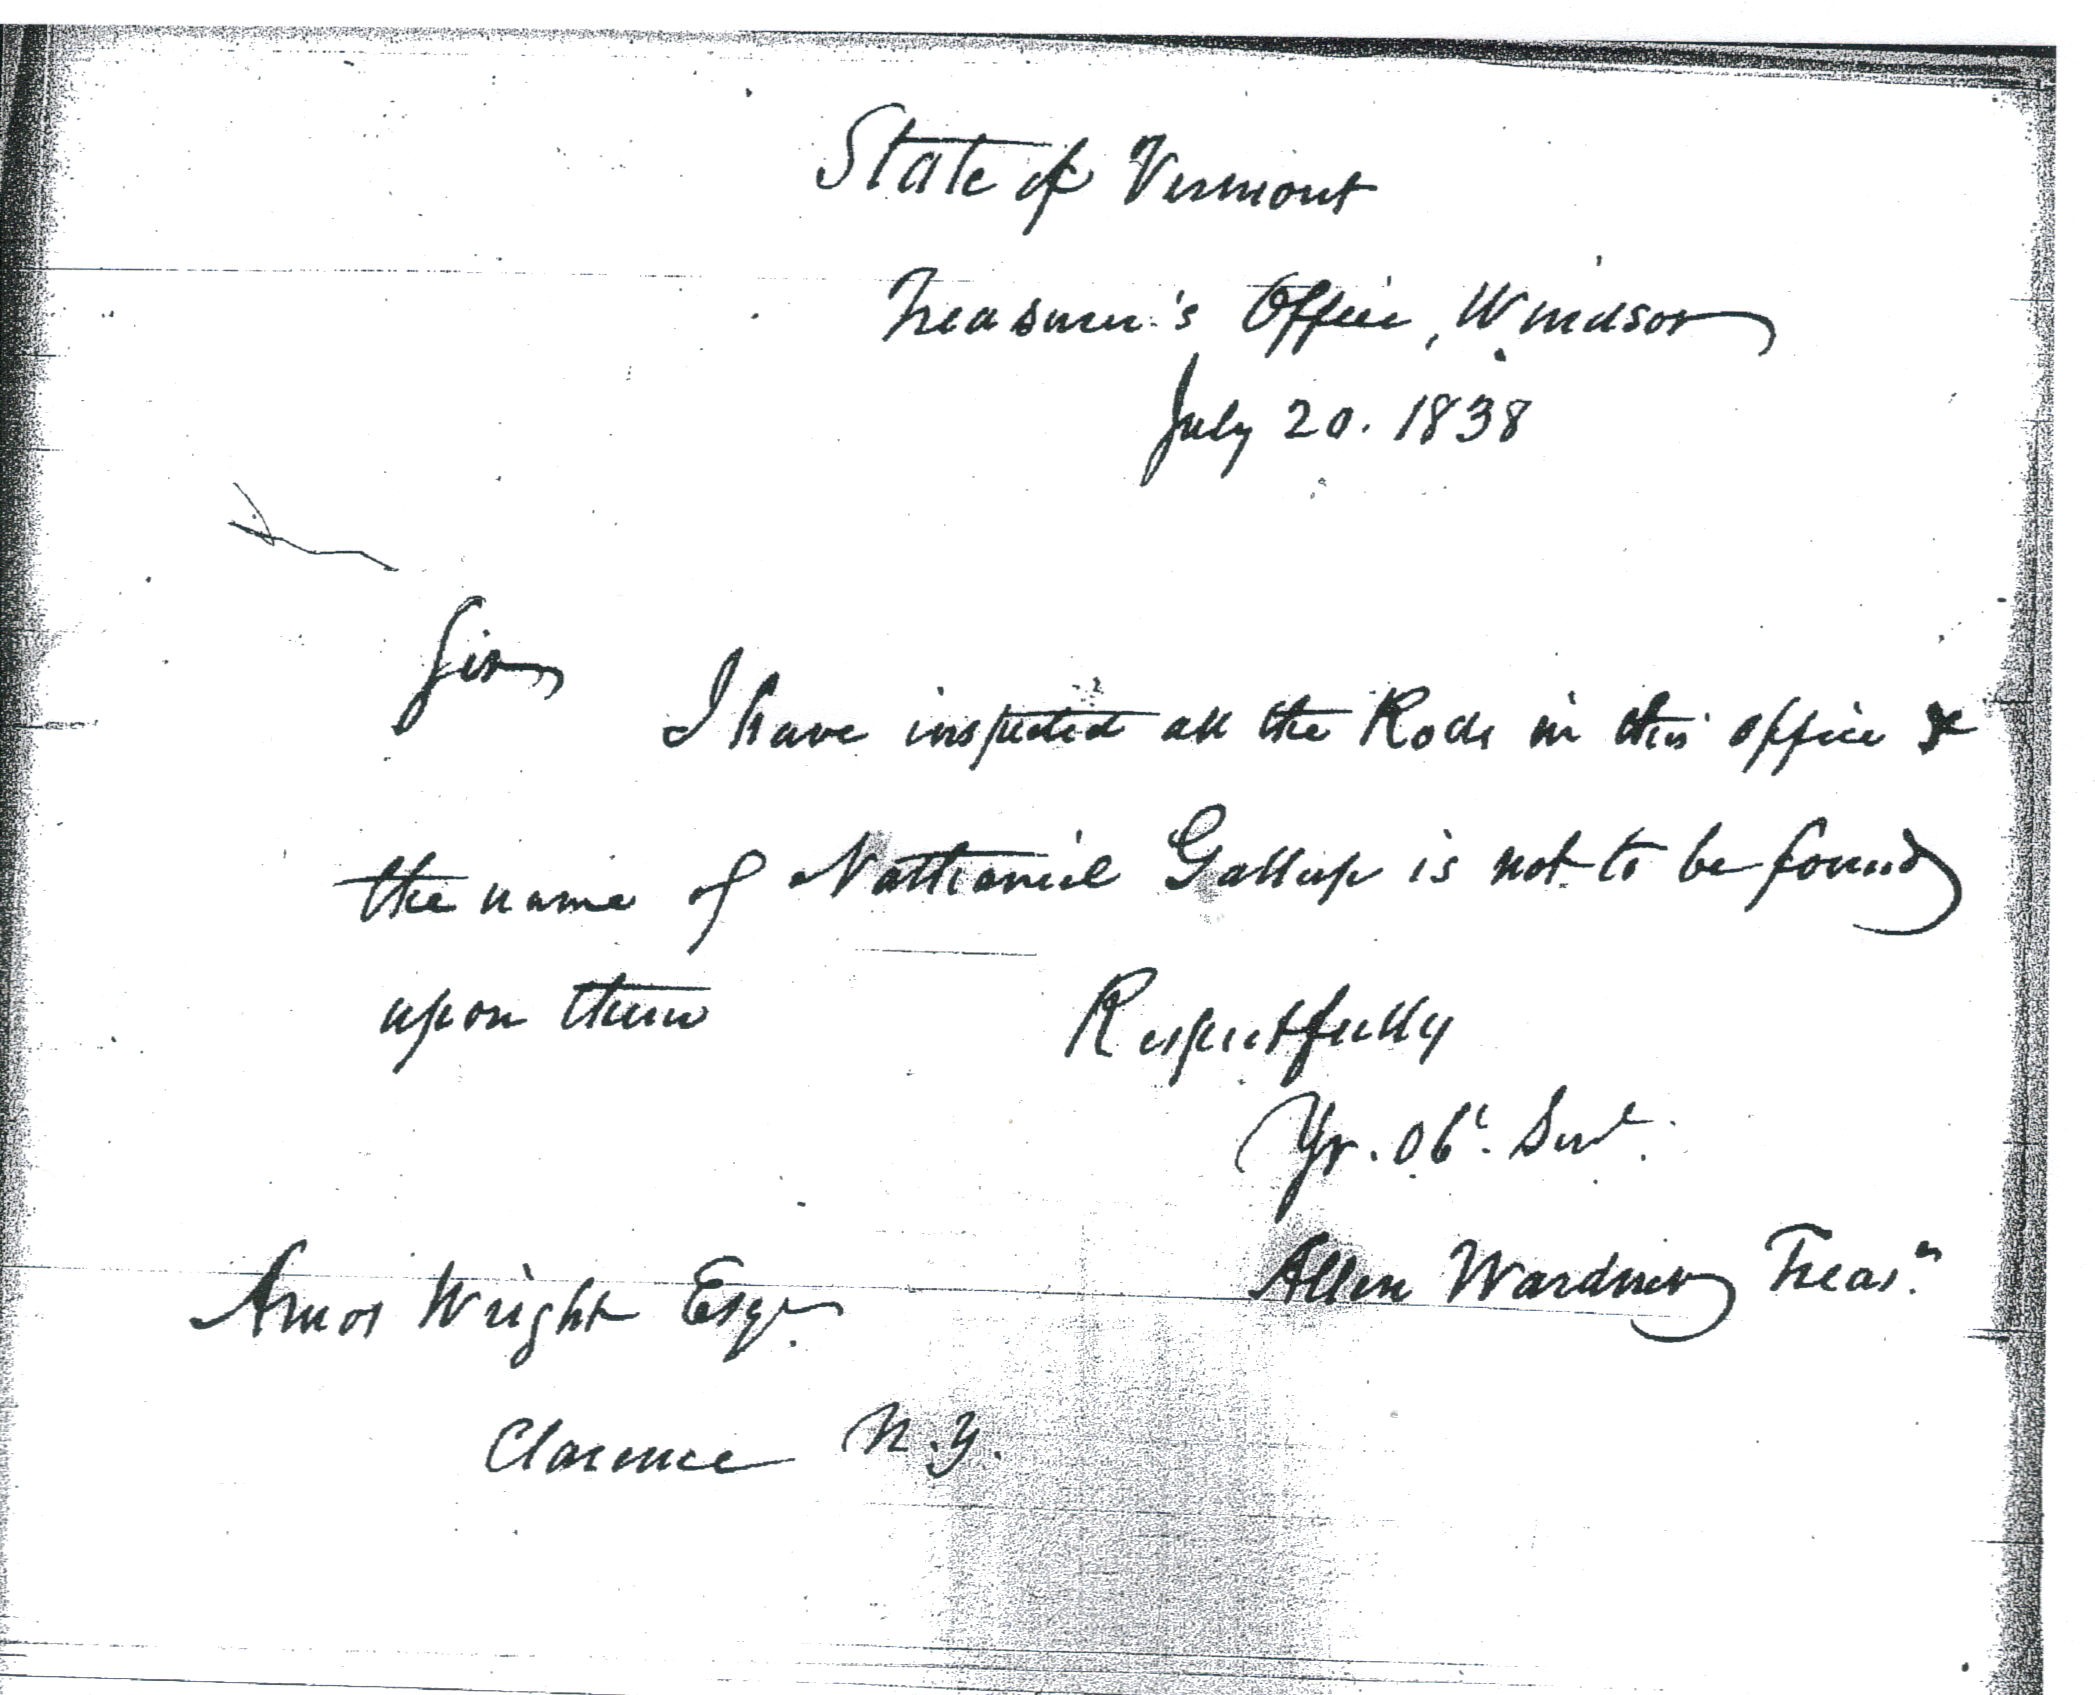 State of Vermont
Treasurer's Office, Windsor
July 20. 1838
Sir
I have inspected all the Rolls in this office &
the name of Nathaniel Gallup is not to be found
upon them
Respectfully
Yr. Obt. Servt.
Allen Wardner Treasr.
Amos Wright Esqr
Clarence N.Y.